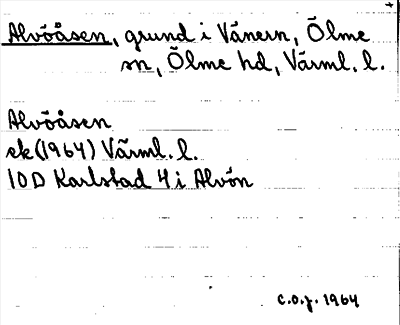 Alvöåsen, grund i Vänern, Ölme
sn, Ölme hd, Värml. l.
Alvöåsen
ek (1964) Värml. l.
10D Karlstad 4 i Alvön
C.O.J. 1964